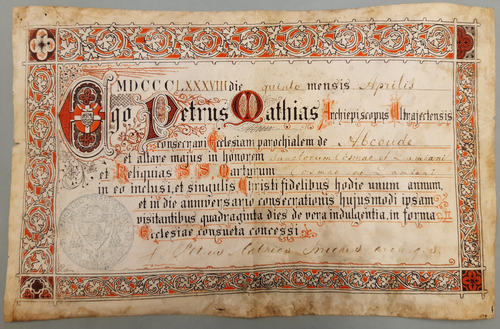 MDCCCLXXXVIII die quinto mensis Aprilis
Ego Petrus Mathias Archiepiscopus Ultrajectensis
consecravi Ecclesiam parochialem de Abcoude
et altare majus in honorem Sanctorum Cosmae et Damiani
et Reliquias S.S. Martyrum Cosmae et Damiani
in eo inclusi, et singulis Christi fidelibus hodie unum annum,
et in die anniversario consecrationis hujusmodi ipsam
visitantibus quadraginta dies de vera indulgentia, in forma
Ecclesiae consueta concessi
Petrus Mathias